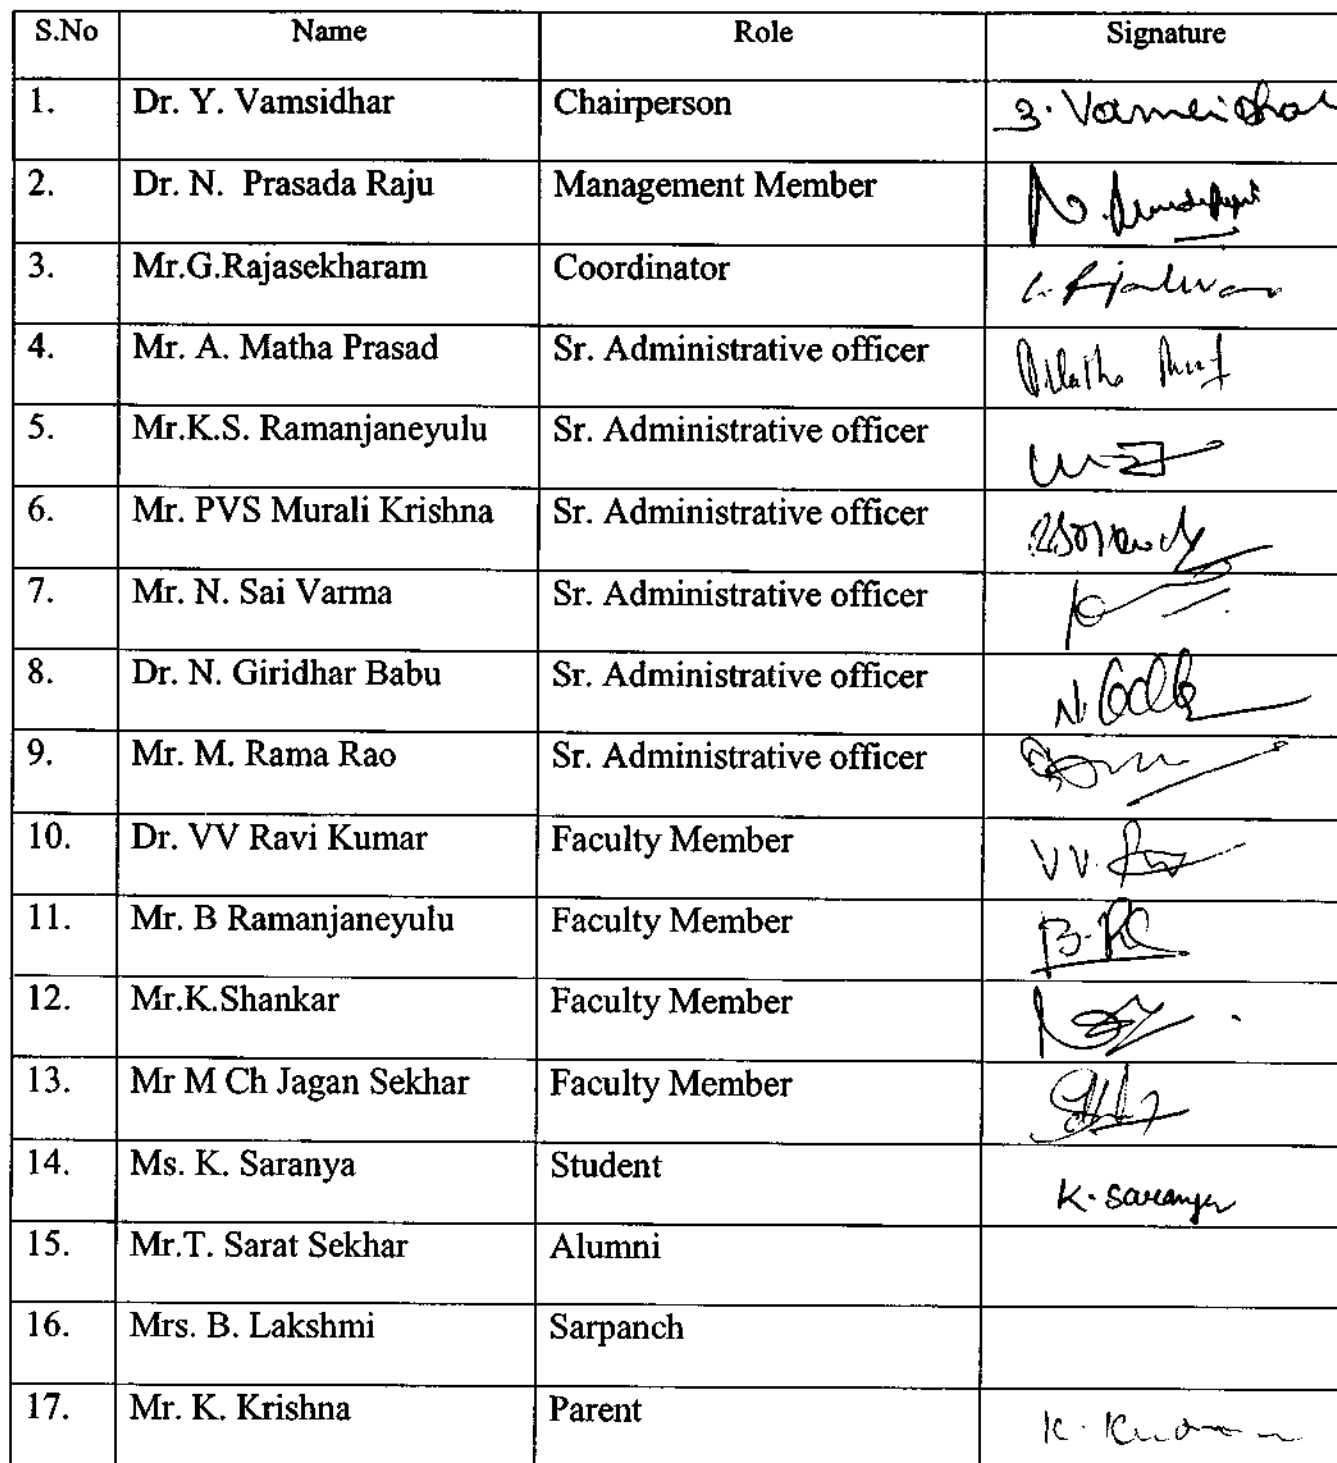 S.No Name Role Signature
1. Dr. Y. Vamsidhar Chairperson
2. Dr. N. Prasada Raju Management Member
3. Mr.G.Rajasekharam Coordinator
4. Mr. A. Matha Prasad Sr. Administrative officer
5. Mr.K.S. Ramanjaneyulu Sr. Administrative officer
6. Mr. PVS Murali Krishna Sr. Administrative officer
7. Mr. N. Sai Varma Sr. Administrative officer
8. Dr. N. Giridhar Babu Sr. Administrative officer
9. Mr. M. Rama Rao Sr. Administrative officer
10. Dr. VV Ravi Kumar Faculty Member VV.
11. Mr. B Ramanjaneyulu Faculty Member
12. Mr.K.Shankar Faculty Member
13. Mr M Ch Jagan Sekhar Faculty Member
14. Ms. K. Saranya Student K. Saranya
15. Mr.T. Sarat Sekhar Alumni
16. Mrs. B. Lakshmi Sarpanch
17. Mr. K. Krishna Parent